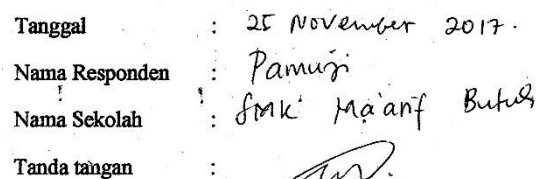 Tanggal : 25 November 2017.
Nama Responden : Pamuji
Nama Sekolah : SMK Ma'arif
Tanda tangan :